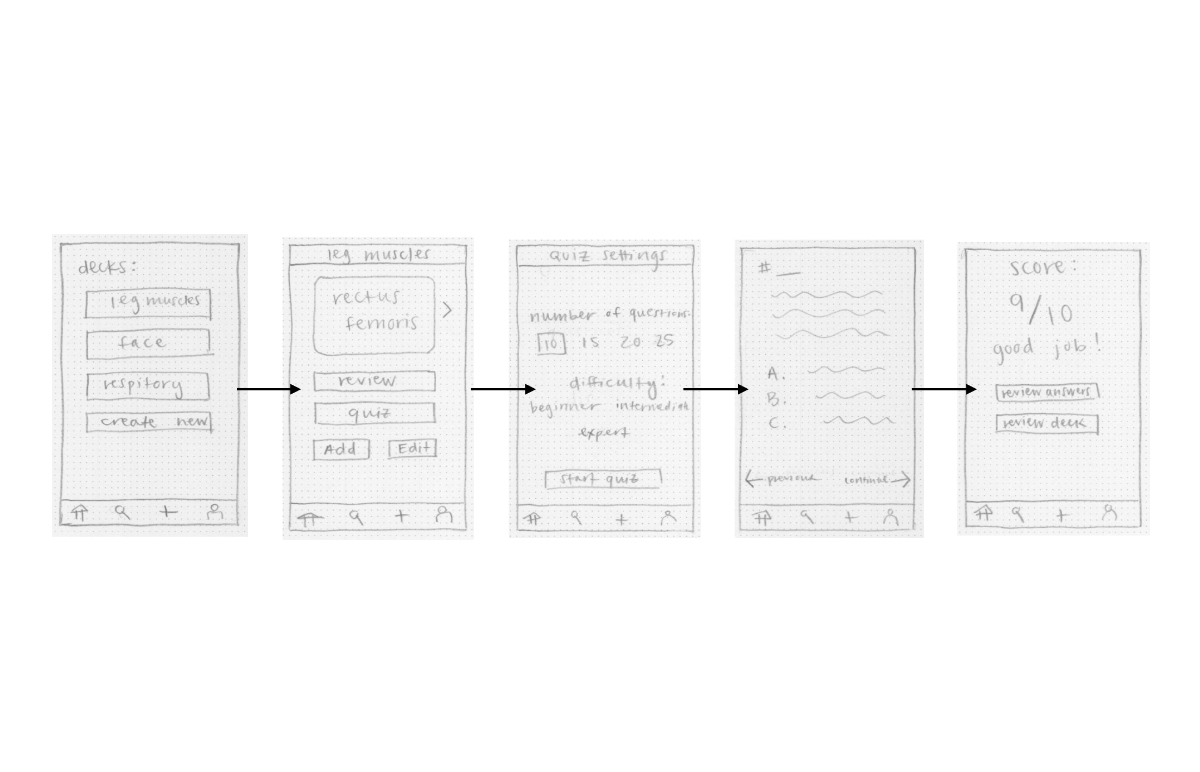 decks:
leg muscles
face
respitory
create new
leg muscles
rectus
femoris
review
quiz
Add Edit
quiz settings
number of questions:
10 15 20 25
difficulty:
beginner intermediate
expert
start quiz
#
A.
B.
C.
previous continue
score:
9/10
good job!
review answers
review deck